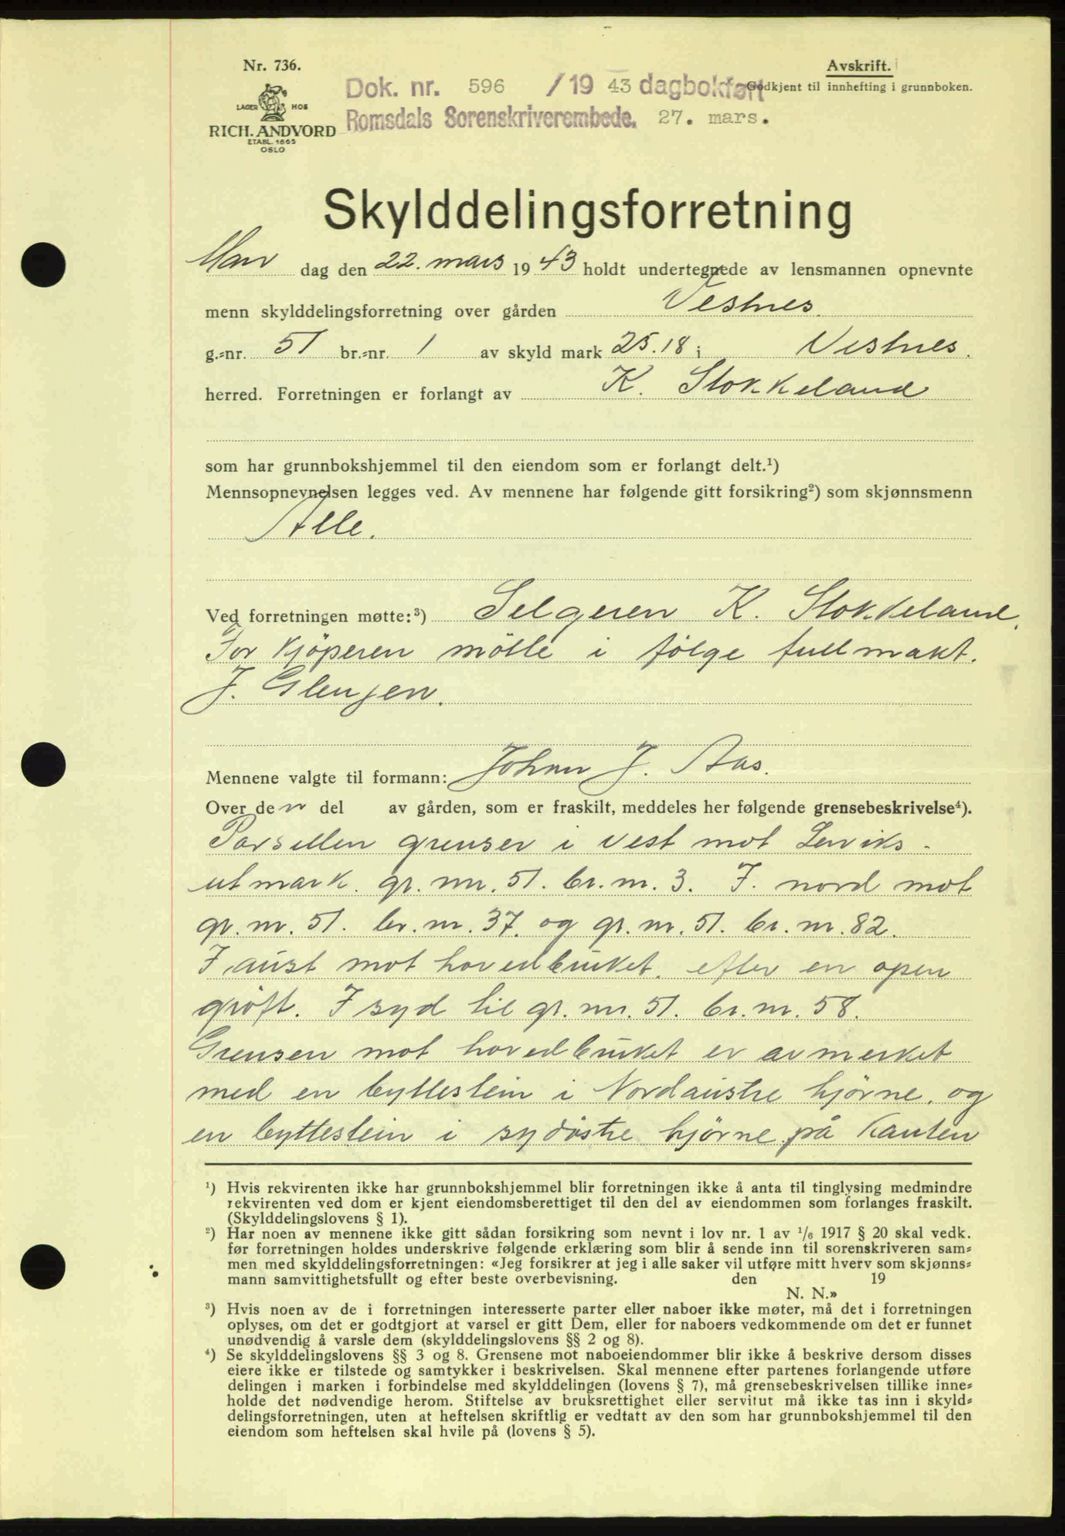 Nr. 736.
Avskrift.
Dok. nr. 596 /19 43 dagbokført
Godkjent til innhefting i grunnboken.
LAGER HOS
RICH. ANDVORD
ETABL. 1865
OSLO
Romsdals Sorenskriverembede. 27. mars.
Skylddelingsforretning
Man dag den 22. mars 19 43 holdt undertegnede av lensmannen opnevnte
menn skylddelingsforretning over gården Vestnes.
g.=nr. 51 br.=nr. 1 av skyld mark 25.18 i Vestnes.
herred. Forretningen er forlangt av K. Stokkeland
som har grunnbokshjemmel til den eiendom som er forlangt delt.¹)
Mennsopnevnelsen legges ved. Av mennene har følgende gitt forsikring²) som skjønnsmenn
Alle.
Ved forretningen møtte:³) Selgeren K. Stokkeland.
For Kjöperen mötte i følge fullmakt.
J. Gjengen.
Mennene valgte til formann: Johan J. Aas.
Over de n del av gården, som er fraskilt, meddeles her følgende grensebeskrivelse⁴).
Parsellen grenser i vest mot
utmark. gr. nr. 51. br. nr. 3. I nord mot
gr. nr. 51. br. nr. 37. og gr. nr. 51. br. nr. 82.
I aust mot hovedbruket. efter en open
gröft. I syd til gr. nr. 51. br. nr. 58.
Grensen mot hovedbruket er avmerket
med en byttestein i Nordaustre hjörne. og
en byttestein i sydöstre hjörne på Kanten
¹) Hvis rekvirenten ikke har grunnbokshjemmel blir forretningen ikke å anta til tinglysing medmindre
rekvirenten ved dom er kjent eiendomsberettiget til den del av eiendommen som forlanges fraskilt.
(Skylddelingslovens § 1).
²) Har noen av mennene ikke gitt sådan forsikring som nevnt i lov nr. 1 av ¹/₆ 1917 § 20 skal vedk.
før forretningen holdes underskrive følgende erklæring som blir å sende inn til sorenskriveren sam=
men med skylddelingsforretningen: «Jeg forsikrer at jeg i alle saker vil utføre mitt hverv som skjønns=
mann samvittighetsfullt og efter beste overbevisning. den 19
N. N.»
³) Hvis noen av de i forretningen interesserte parter eller naboer ikke møter, må det i forretningen
oplyses, om det er godtgjort at varsel er gitt Dem, eller for naboers vedkommende om det er funnet
unødvendig å varsle dem (skylddelingslovens §§ 2 og 8).
⁴) Se skylddelingslovens §§ 3 og 8. Grensene mot naboeiendommer blir ikke å beskrive dersom disses
eiere ikke er tilstede og samtykker i beskrivelsen. Skal mennene efter partenes forlangende utføre
delingen i marken i forbindelse med skylddelingen (lovens § 7), må grensebeskrivelsen tillike inne=
holde det nødvendige herom. Stiftelse av bruksrettighet eller servitut må ikke tas inn i skyld=
delingsforretningen, uten at heftelsen skriftlig er vedtatt av den som har grunnbokshjemmel til den
eiendom som heftelsen skal hvile på (lovens § 5).